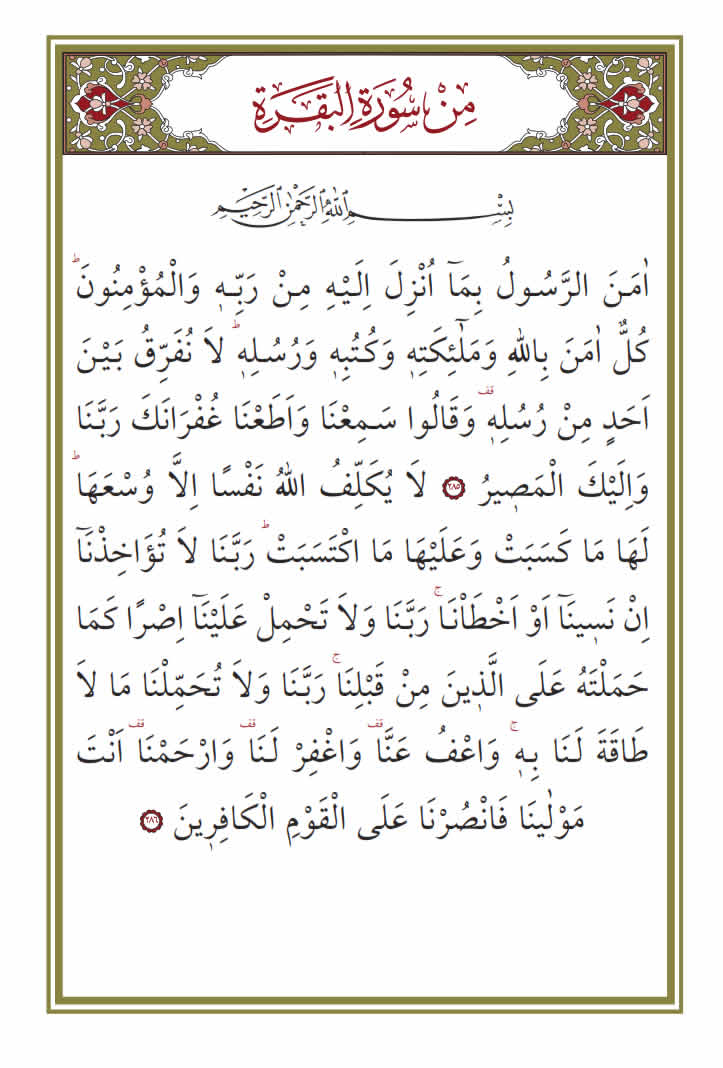 مِنْ سُورَةِ الْبَقَرَةِ
بِسْمِ اللّٰهِ الرَّحْمٰنِ الرَّحِيمِ
اٰمَنَ الرَّسُولُ بِمَٓا اُنْزِلَ اِلَيْهِ مِنْ رَبِّه۪ وَالْمُؤْمِنُونَۜ
كُلٌّ اٰمَنَ بِاللّٰهِ وَمَلٰٓئِكَتِه۪ وَكُتُبِه۪ وَرُسُلِه۪ۜ لَا نُفَرِّقُ بَيْنَ
اَحَدٍ مِنْ رُسُلِه۪ قف وَقَالُوا سَمِعْنَا وَاَطَعْنَا غُفْرَانَكَ رَبَّنَا
وَاِلَيْكَ الْمَص۪يرُ ﴿٢٨٥﴾ لَا يُكَلِّفُ اللّٰهُ نَفْسًا اِلَّا وُسْعَهَاۜ
لَهَا مَا كَسَبَتْ وَعَلَيْهَا مَا اكْتَسَبَتْۜ رَبَّنَا لَا تُؤَاخِذْنَٓا
اِنْ نَس۪ينَٓا اَوْ اَخْطَاْنَاۚ رَبَّنَا وَلَا تَحْمِلْ عَلَيْنَٓا اِصْرًا كَمَا
حَمَلْتَهُ عَلَى الَّذ۪ينَ مِنْ قَبْلِنَاۚ رَبَّنَا وَلَا تُحَمِّلْنَا مَا لَا
طَاقَةَ لَنَا بِه۪ۚ وَاعْفُ عَنَّا قف وَاغْفِرْ لَنَا قف وَارْحَمْنَا قف اَنْتَ
مَوْلٰينَا فَانْصُرْنَا عَلَى الْقَوْمِ الْكَافِر۪ينَ ﴿٢٨٦﴾